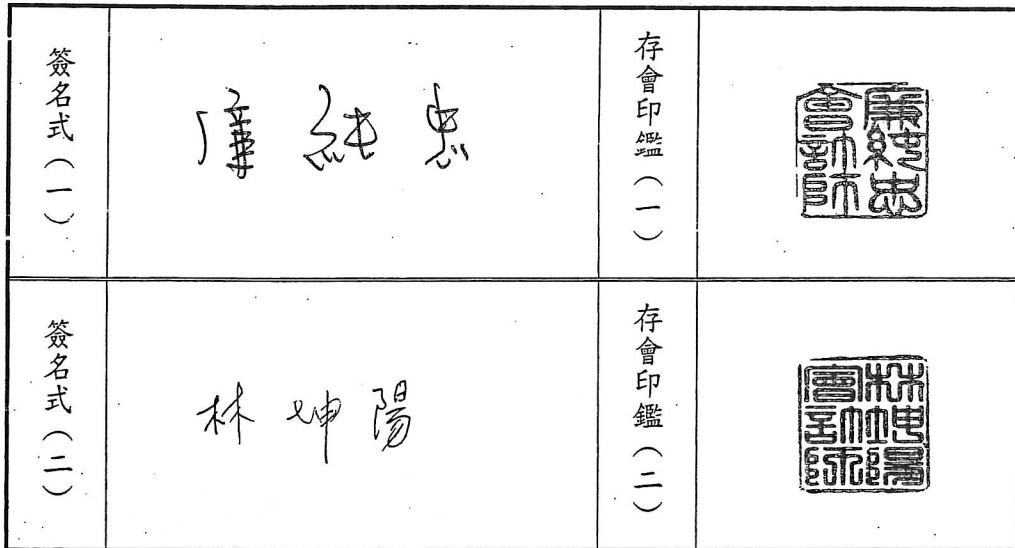 簽名式（一）
廉純忠
存會印鑑（一）
廉純忠
會計師
簽名式（二）
林坤陽
存會印鑑（二）
林坤陽
會計師